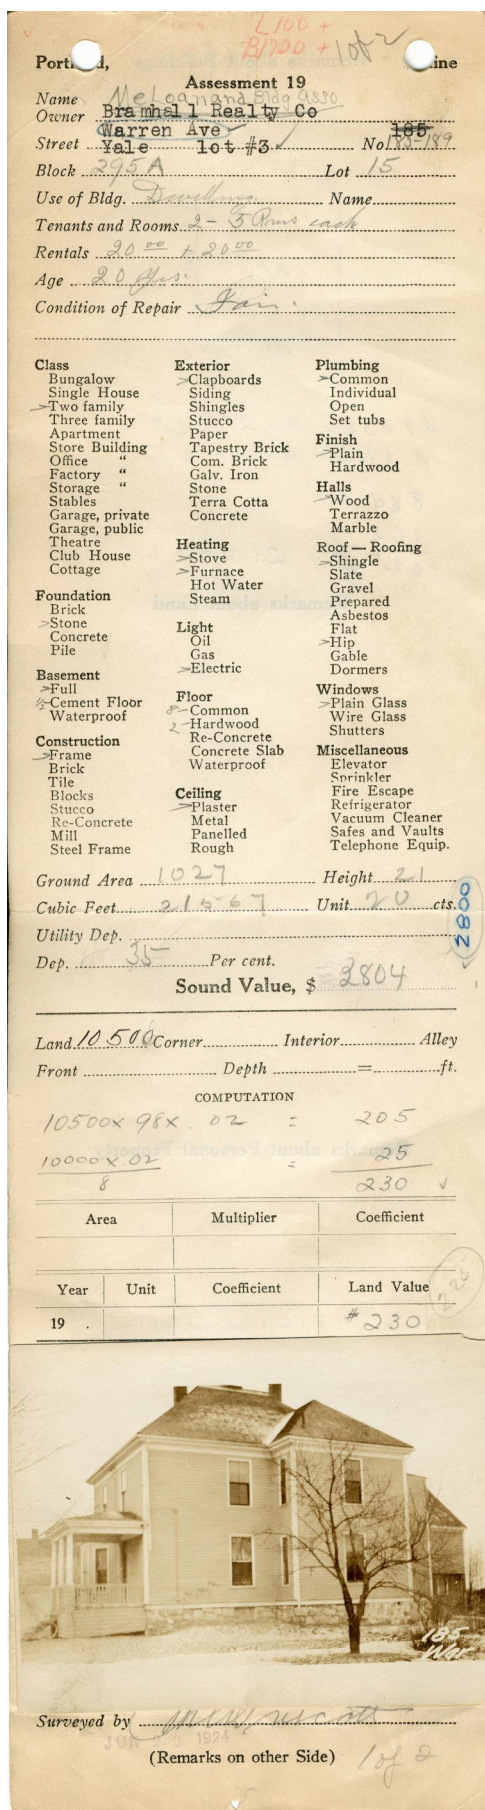 L100 +
B1700 + 1 of 2
Portland, Maine
Assessment 19
Name Me Loan and Bldg Asso
Owner Bramhall Realty Co
Warren Ave
Street Yale lot #3 No 185 185-189
Block 295A Lot 15
Use of Bldg. Dwelling Name
Tenants and Rooms 2 - 5 Rms each
Rentals 20 00 + 20 00
Age 20 yrs.
Condition of Repair Fair.
Class
Bungalow
Single House
>Two family
Three family
Apartment
Store Building
Office "
Factory "
Storage "
Stables
Garage, private
Garage, public
Theatre
Club House
Cottage
Foundation
Brick
>Stone
Concrete
Pile
Basement
>Full
1/2 Cement Floor
Waterproof
Construction
>Frame
Brick
Tile
Blocks
Stucco
Re-Concrete
Mill
Steel Frame
Exterior
>Clapboards
Siding
Shingles
Stucco
Paper
Tapestry Brick
Com. Brick
Galv. Iron
Stone
Terra Cotta
Concrete
Heating
>Stove
>Furnace
Hot Water
Steam
Light
Oil
Gas
>Electric
Floor
8 - Common
2 - Hardwood
Re-Concrete
Concrete Slab
Waterproof
Ceiling
>Plaster
Metal
Panelled
Rough
Plumbing
>Common
Individual
Open
Set tubs
Finish
>Plain
Hardwood
Halls
>Wood
Terrazzo
Marble
Roof — Roofing
>Shingle
Slate
Gravel
Prepared
Asbestos
Flat
>Hip
Gable
Dormers
Windows
>Plain Glass
Wire Glass
Shutters
Miscellaneous
Elevator
Sprinkler
Fire Escape
Refrigerator
Vacuum Cleaner
Safes and Vaults
Telephone Equip.
Ground Area 1027 Height 21
Cubic Feet 21567 Unit 20 cts.
2800
Utility Dep.
Dep. 35 Per cent.
Sound Value, $ 2804
Land 10500 Corner Interior Alley
Front Depth = ft.
COMPUTATION
10500 x 98 x .02 = 205
10000 x .02 = 25
8 230
Area Multiplier Coefficient
Year Unit Coefficient Land Value
225
19 . # 230
185
War
Surveyed by
JUN 1924
(Remarks on other Side) 1 of 2